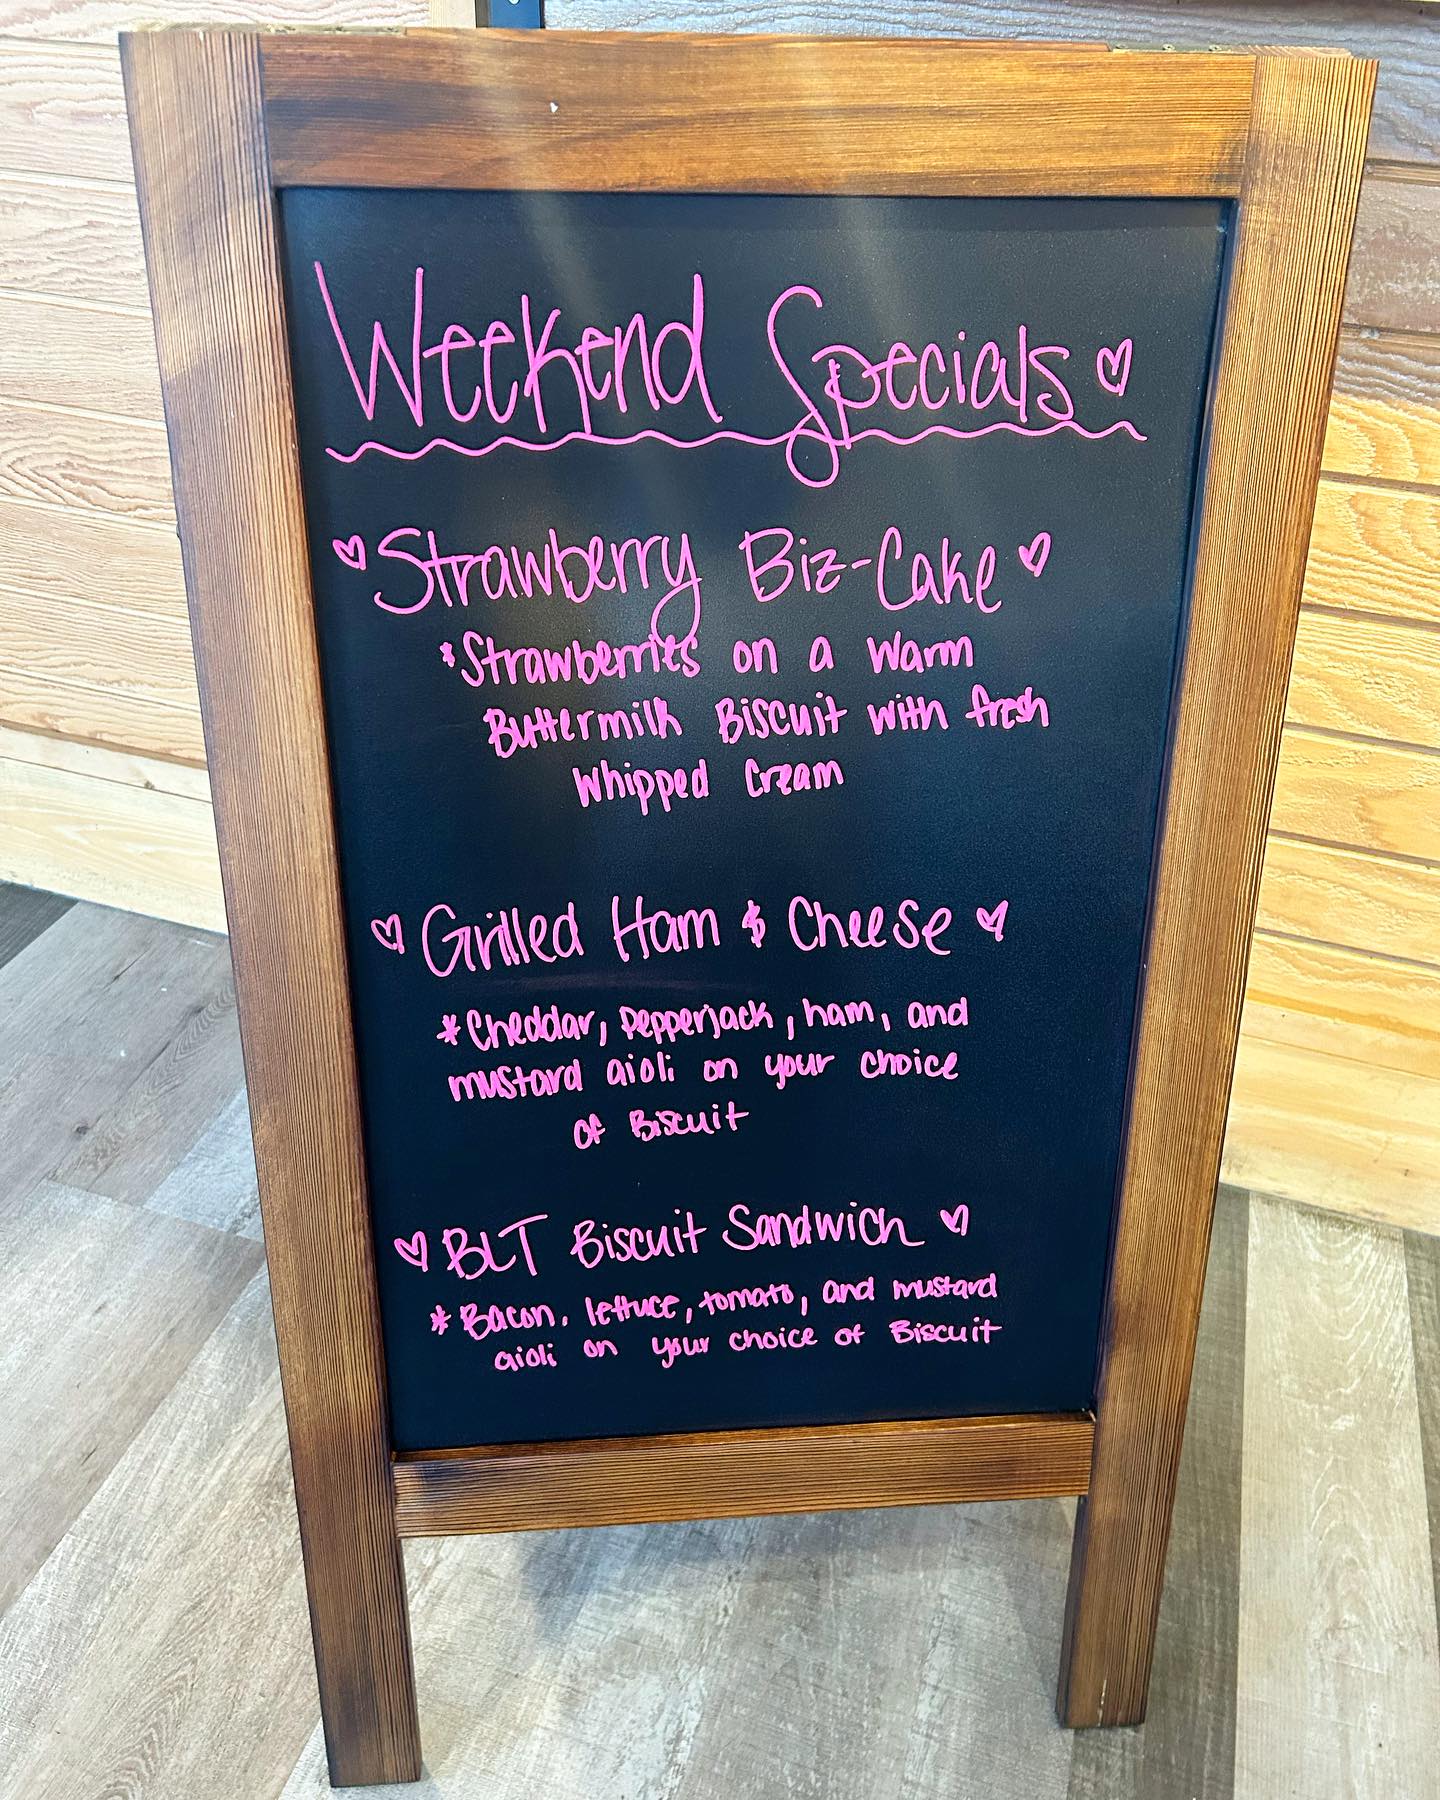 Weekend Specials
Strawberry Biz-Cake
*Strawberries on a warm
Buttermilk Biscuit with fresh
Whipped Cream
Grilled Ham & Cheese
*Cheddar, pepperjack, ham, and
mustard aioli on your choice
of Biscuit
BLT Biscuit Sandwich
*Bacon, lettuce, tomato, and mustard
aioli on your choice of Biscuit